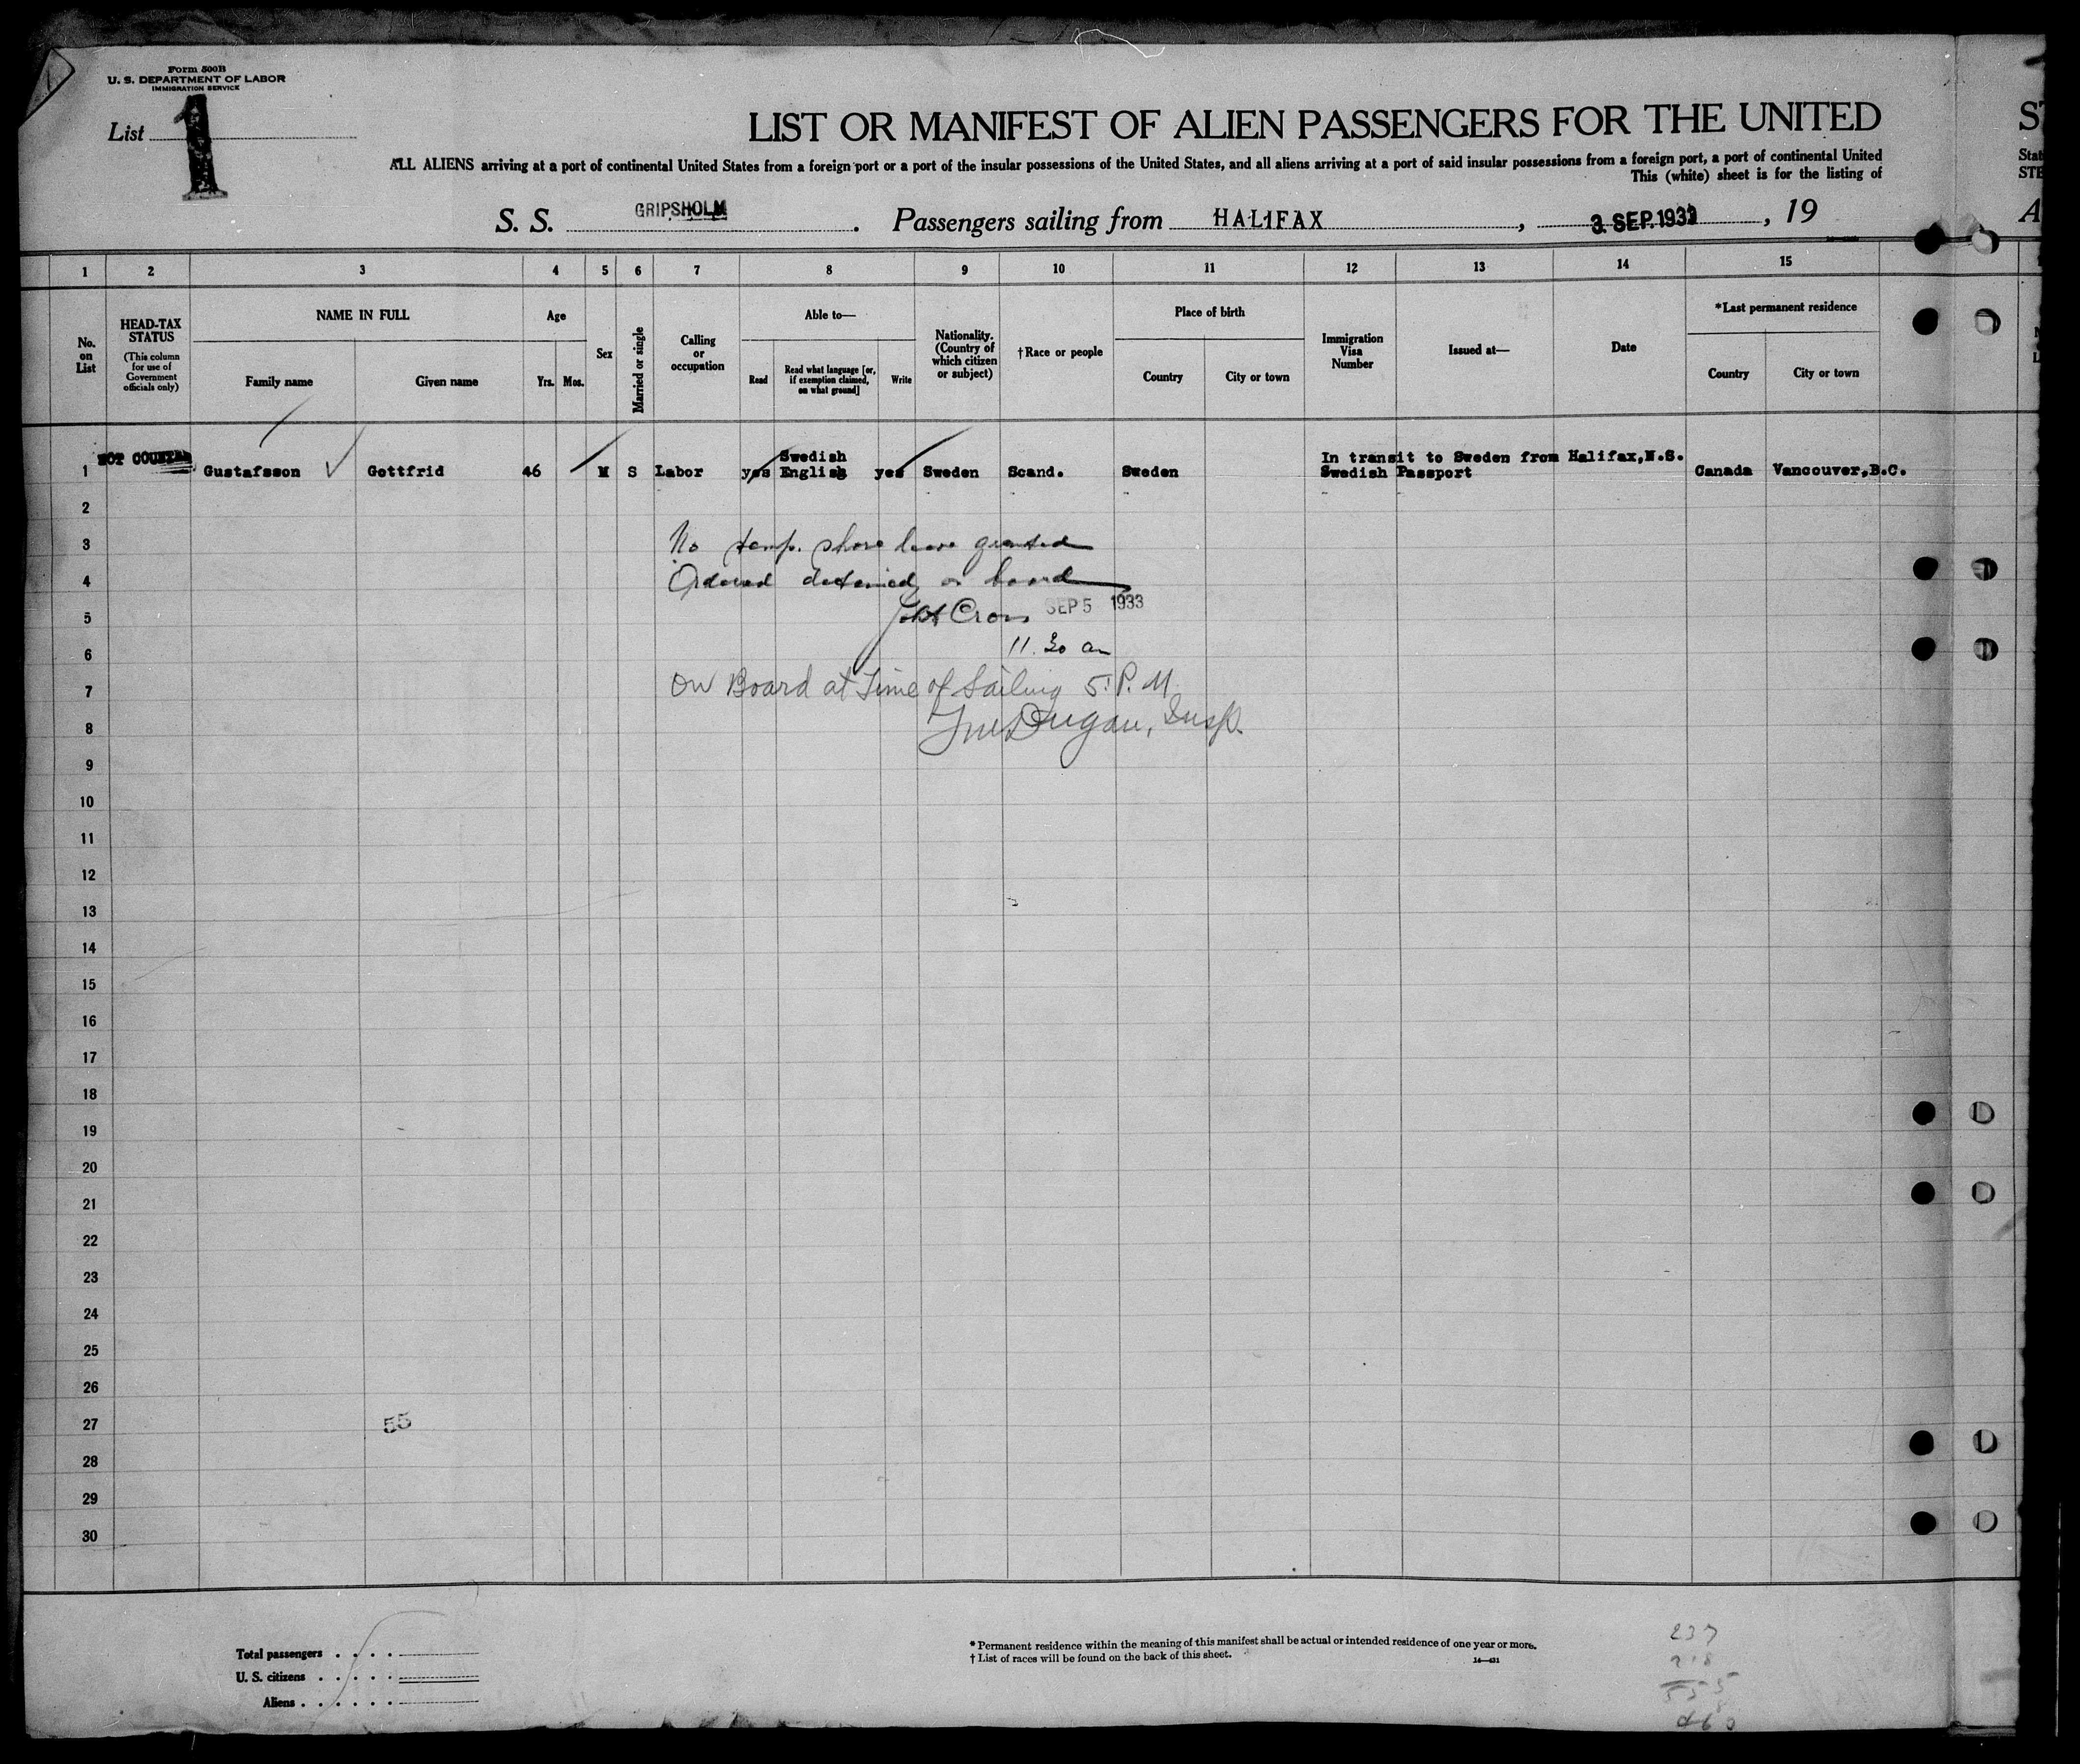 Form 500B
U. S. DEPARTMENT OF LABOR
IMMIGRATION SERVICE
List 1
LIST OR MANIFEST OF ALIEN PASSENGERS FOR THE UNITED
ST
ALL ALIENS arriving at a port of continental United States from a foreign port or a port of the insular possessions of the United States, and all aliens arriving at a port of said insular possessions from a foreign port, a port of continental United
Stat
This (white) sheet is for the listing of
STE
S. S. GRIPSHOLM. Passengers sailing from HALIFAX, 3. SEP. 1933, 19
A
1 2 3 4 5 6 7 8 9 10 11 12 13 14 15
No. on List
HEAD-TAX STATUS
(This column for use of Government officials only)
NAME IN FULL
Family name
Given name
Age
Yrs. Mos.
Sex
Married or single
Calling or occupation
Able to—
Read
Read what language [or, if exemption claimed, on what ground]
Write
Nationality. (Country of which citizen or subject)
†Race or people
Place of birth
Country
City or town
Immigration Visa Number
Issued at—
Date
*Last permanent residence
Country
City or town
NOT COUNTED
Swedish
In transit to Sweden from Halifax,N.S.
1 Gustafsson Gottfrid 46 M S Labor yes English yes Sweden Scand. Sweden Swedish Passport Canada Vancouver,B.C.
2
3 No temp. shore leave granted
4 Ordered detained on board
5 Cross SEP 5 1933
6 11.30 am
7 On Board at Time of Sailing 5 P. M.
8 Dugan, Insp.
9
10
11
12
13
14
15
16
17
18
19
20
21
22
23
24
25
26
27 55
28
29
30
Total passengers
U. S. citizens
Aliens
* Permanent residence within the meaning of this manifest shall be actual or intended residence of one year or more.
† List of races will be found on the back of this sheet.
14—431
237
460